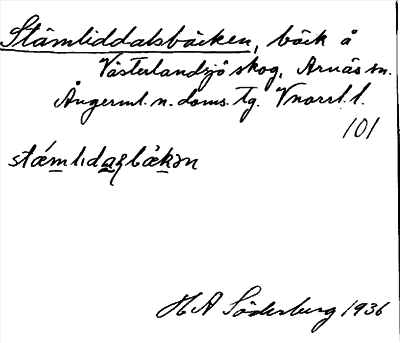 Stämliddalsbäcken, bäck å
Västerlandsjö skog, Arnäs sn.
Ångerml. n. doms. tg. Vnorrl. l.
101
stǽmlıdaʂbäkən
H A Söderburg 1936